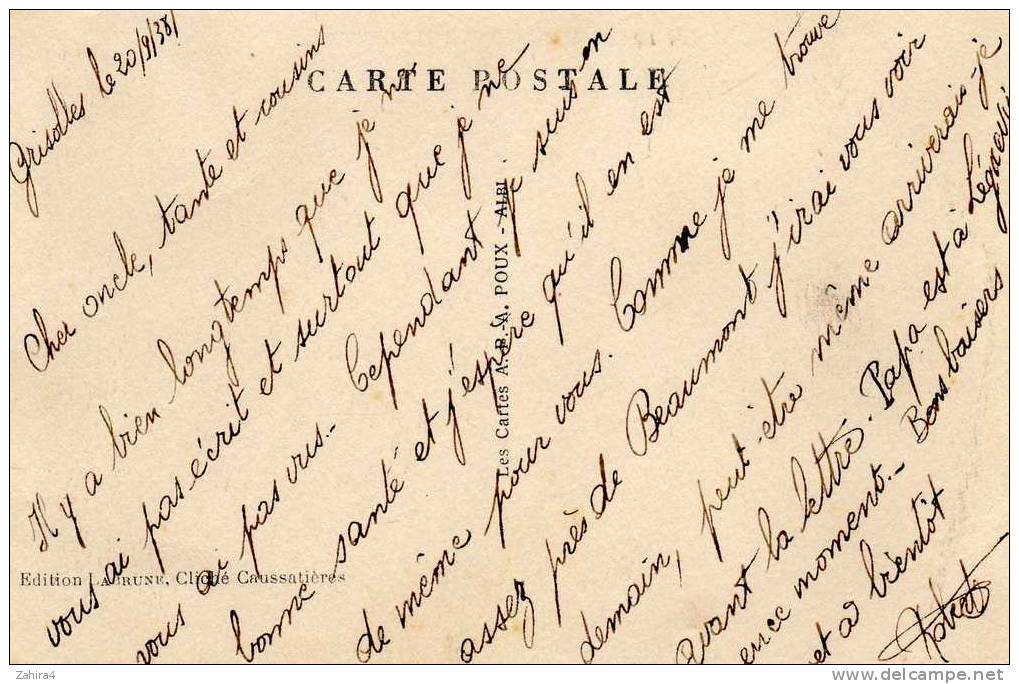 CARTE POSTALE
Grisolles le 20/9/38/
Cher oncle, tante et cousins
Il y a bien longtemps que je ne
vous ai pas écrit et surtout que je ne
vous ai pas vus.- Cependant je suis en
bonne santé et j'espère qu'il en est
de même pour vous. Comme je me trouve
assez près de Beaumont j'irai vous voir
demain, peut-être même arriverais-je
avant la lettre. Papa est à
en ce moment.- Bons baisers
et à bientôt
Les Cartes A. P.-A. POUX - ALBI
Edition LABRUNE, Cliché Caussatières
Zahira4
delcampe.net